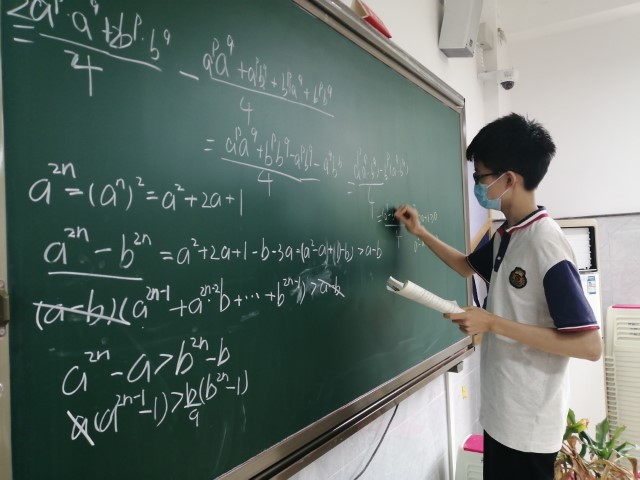 = 2a^p·a^q+b^p·b^q / 4 - a^p a^q + a^p b^q + b^p a^q + b^p b^q / 4
= a^p a^q + b^p b^q - a^p b^q - a^q b^p / 4 =
a^{2n} = (a^n)^2 = a^2 + 2a + 1
a^{2n} - b^{2n} = a^2 + 2a + 1 - b - 3a = (a^2 - a + 1) - b > a - b
(a-b)(a^{2n-1} + a^{2n-2}b + ... + b^{2n-1}) > a-b
a^{2n} - a > b^{2n} - b
a(a^{2n-1} - 1) > b/a (b^{2n} - 1)